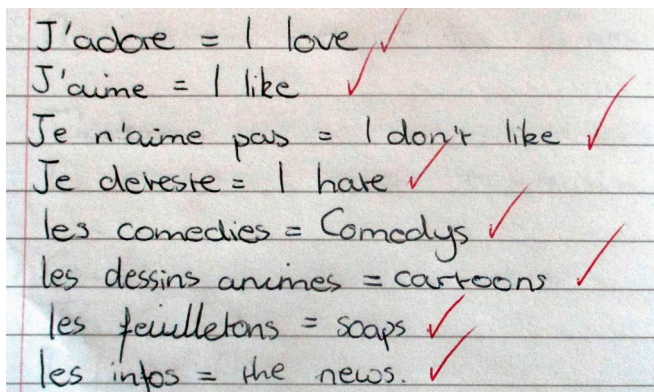 J'adore = I love
J'aime = I like
Je n'aime pas = I don't like
Je deteste = I hate
les comedies = Comedys
les dessins animes = cartoons
les feuilletons = soaps
les infos = the news.